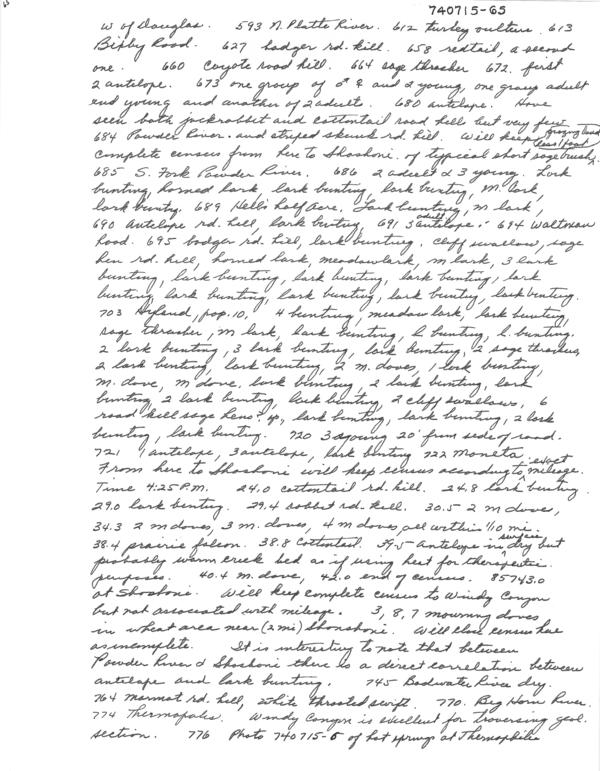 740715-65
W of Douglas. 593 N. Platte River. 612 turkey vulture. 613
Bixby Road. 627 badger rd. kill. 658 redtail, a second
one. 660 Coyote road kill. 664 sage thrasher 672. first
2 antelope. 673 one group of ♂ ♀ and 2 young, one group adult
and young and another of 2 adults. 680 antelope. Have
seen both jackrabbit and cottontail road kills but very few
684 Powder River. and striped skunk rd. kill. Will keep grazing land
complete census from here to Shoshoni. of typical short sage brush
685 S. Fork Powder River. 686 2 adult & 3 young. Lark
bunting, horned lark, lark bunting, lark bunting, M. lark,
lark bunting. 689 Hell's Half Acre. Lark bunting, m lark,
690 Antelope rd. kill, lark bunting, 691 5 adult antelope. 694 Waltman
Road. 695 badger rd. kill, lark bunting, cliff swallow, sage
hen rd. kill, horned lark, meadowlark, m lark, 3 lark
bunting, lark bunting, lark bunting, lark bunting, lark
bunting, lark bunting, lark bunting, lark bunting, lark bunting.
703 Hiland, pop. 10, 4 bunting, meadow lark, lark bunting,
sage thrasher, m lark, lark bunting, l bunting, l. bunting.
2 lark bunting, 3 lark bunting, lark bunting, 2 sage thrashers,
2 lark bunting, lark bunting, 2 m. doves, 1 lark bunting,
m. dove, m dove, lark bunting, 2 lark bunting, lark
bunting, 2 lark bunting, lark bunting, 2 cliff swallows, 6
road kill sage hens? yp, lark bunting, lark bunting, 2 lark
bunting, lark bunting. 720 3 a young 20' from side of road.
721 1 antelope, 3 antelope, lark bunting 722 Moneta.
From here to Shoshoni will keep census according to exact mileage.
Time 4:25 P.M. 24.0 cottontail rd. kill. 24.8 lark bunting.
29.0 lark bunting. 29.4 rabbit rd. kill. 30.5 2 m doves,
34.3 2 m doves, 3 m. doves, 4 m doves, all within 1/10 mi.
38.4 prairie falcon. 38.8 Cottontail. 39.5 antelope in surface dry but
probably warm creek bed as if using heat for therapeutic
purposes. 40.4 m. dove, 42.0 end of census. 85743.0
at Shoshoni. Will keep complete census to Windy Canyon
but not associated with mileage. 3, 8, 7 mourning doves
in wheat area near (2 mi) Shonshoni. Will close census here
as incomplete. It is interesting to note that between
Powder River & Shoshoni there is a direct correlation between
antelope and lark bunting. 745 Badwater River dry.
764 Marmot rd. kill, white throated swift. 770. Big Horn River.
774 Thermopolis. Windy Canyon is excellent for traversing geol.
section. 776 Photo 740715-5 of hot springs at Thermopholis